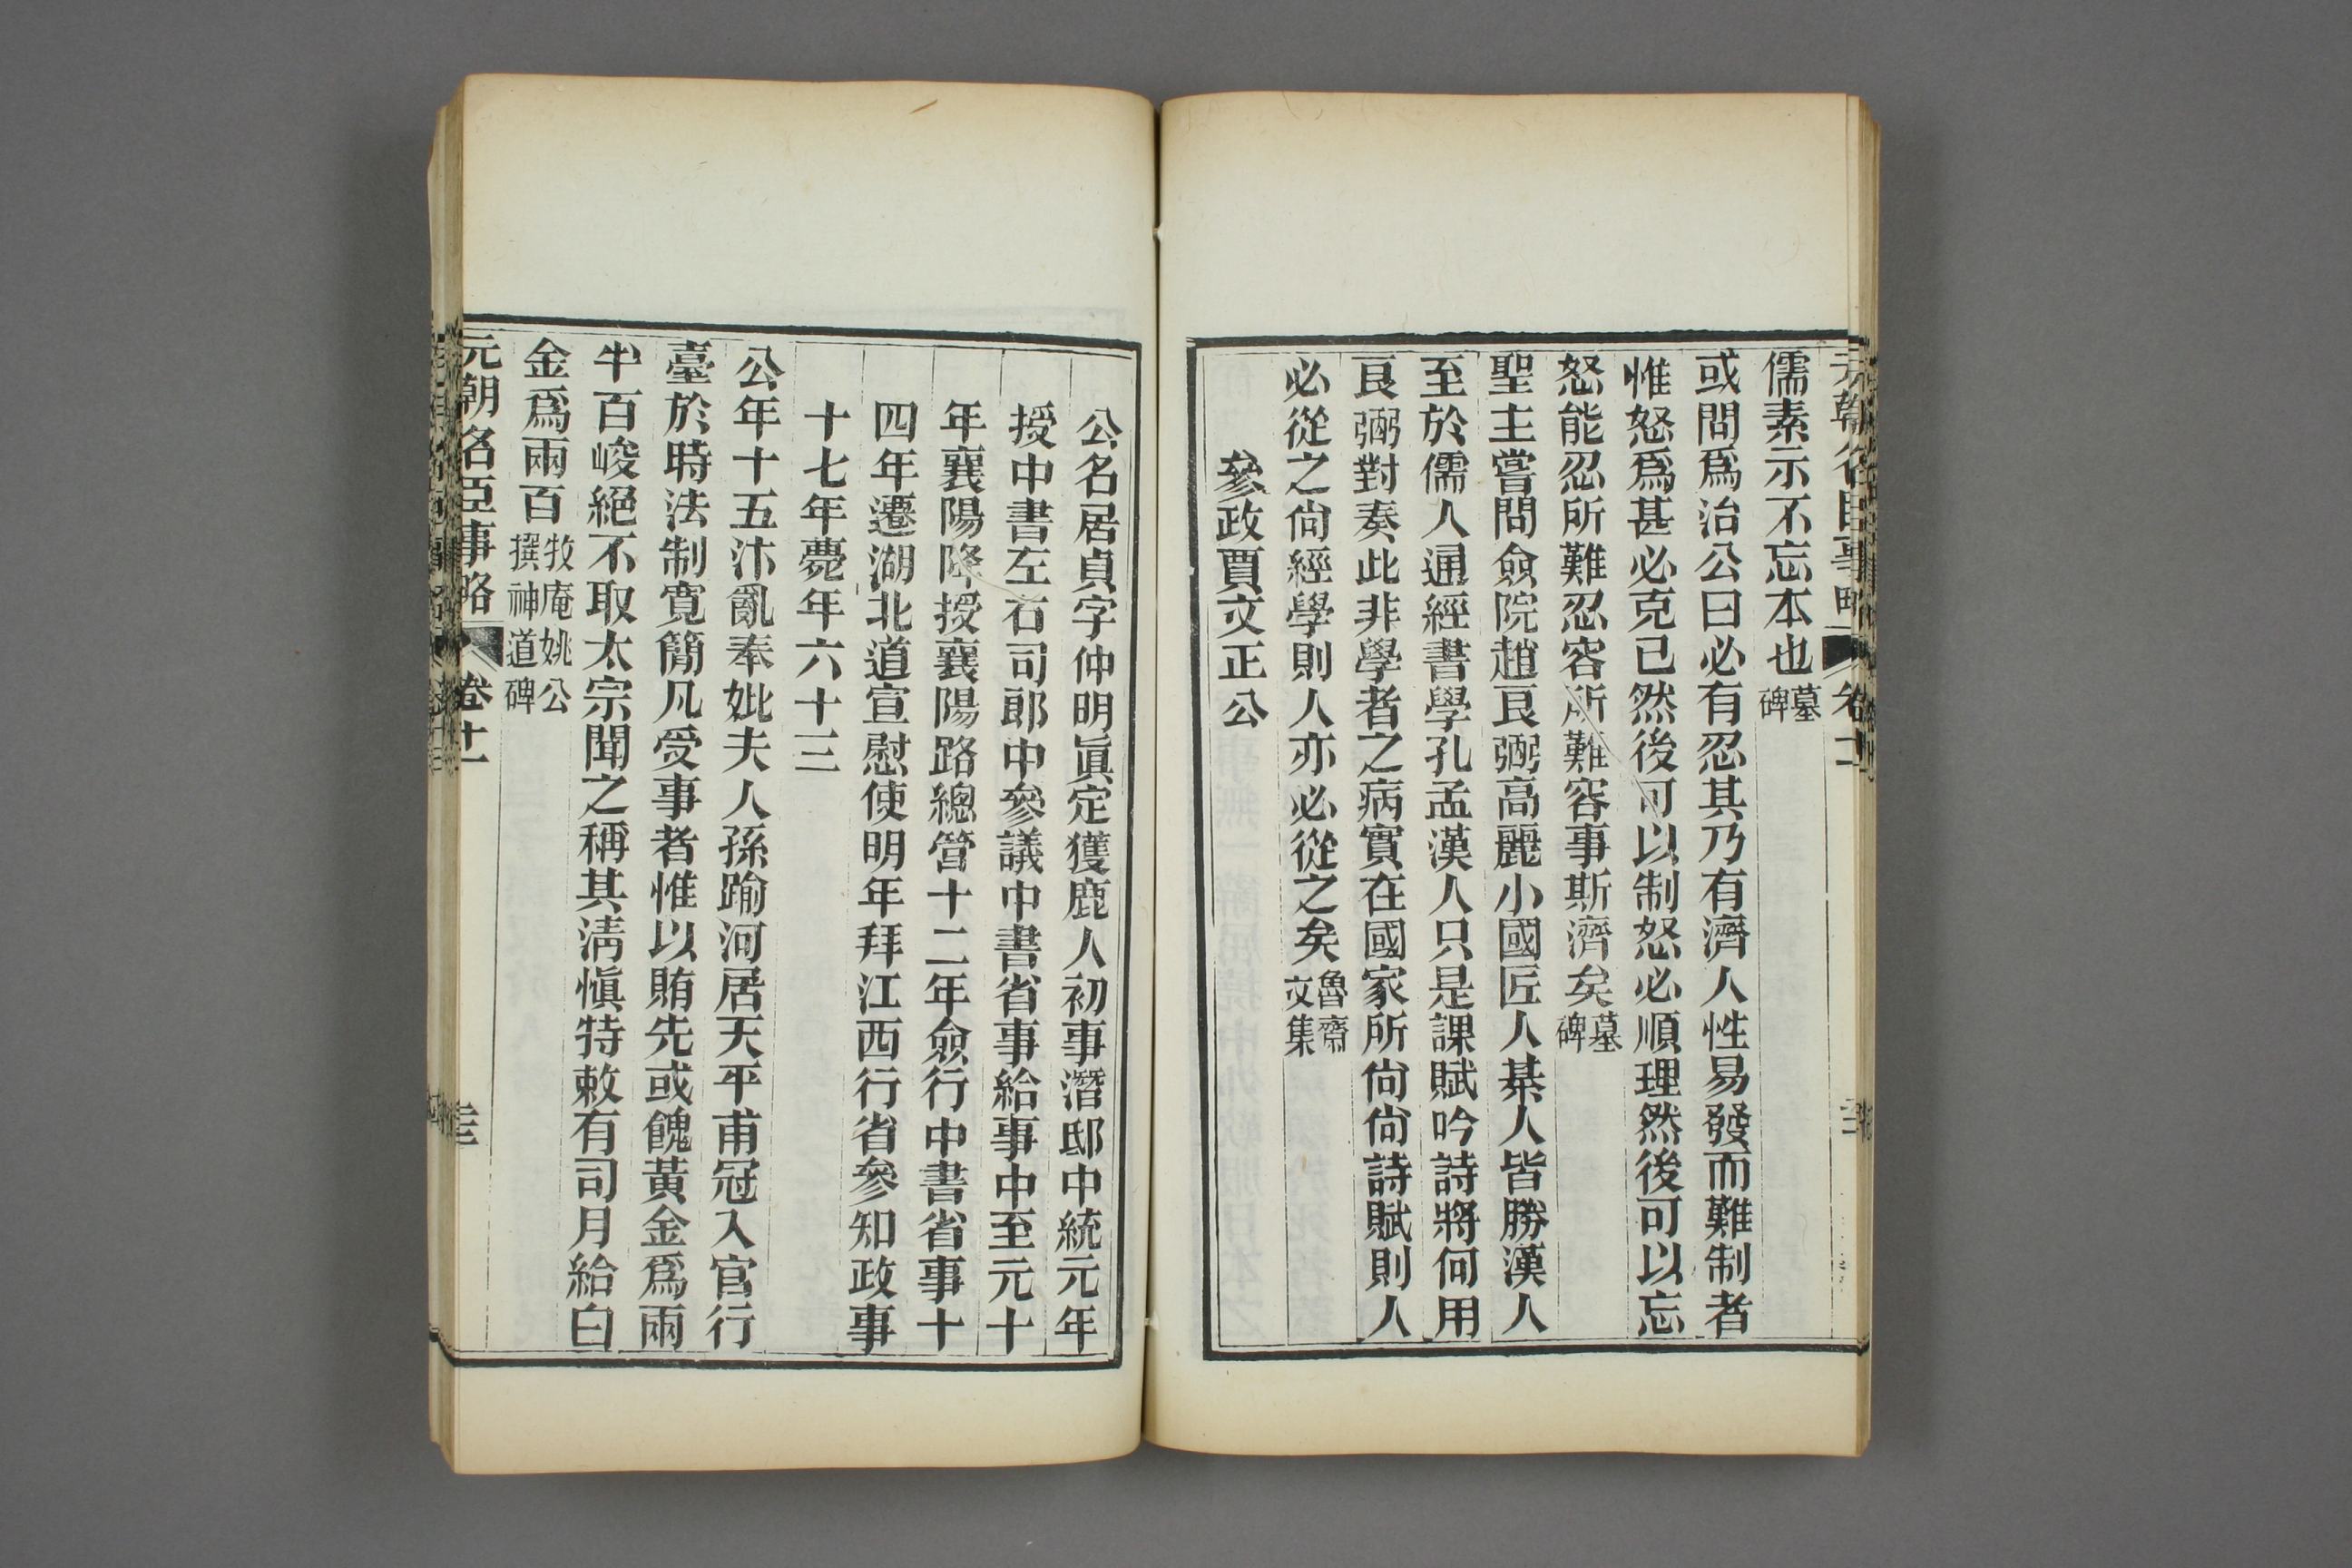 元朝名臣事略 卷十一
儒素示不忘本也墓碑
或問爲治公曰必有忍其乃有濟人性易發而難制者
惟怒爲甚必克己然後可以制怒必順理然後可以忘
怒能忍所難忍容所難容事斯濟矣墓碑
聖主嘗問僉院趙良弼高麗小國匠人棊人皆勝漢人
至於儒人通經書學孔孟漢人只是課賦吟詩將何用
良弼對奏此非學者之病實在國家所尙尙詩賦則人
必從之尙經學則人亦必從之矣魯齋文集
參政賈文正公
公名居貞字仲明眞定獲鹿人初事潛邸中統元年
授中書左右司郎中參議中書省事給事中至元十
年襄陽降授襄陽路總管十二年僉行中書省事十
四年遷湖北道宣慰使明年拜江西行省參知政事
十七年薨年六十三
公年十五汴亂奉妣夫人孫踰河居天平甫冠入官行
臺於時法制寬簡凡受事者惟以賄先或餽黃金爲兩
半百峻絕不取太宗聞之稱其淸愼特敕有司月給白
金爲兩百牧庵姚公撰神道碑
元朝名臣事略 卷十一